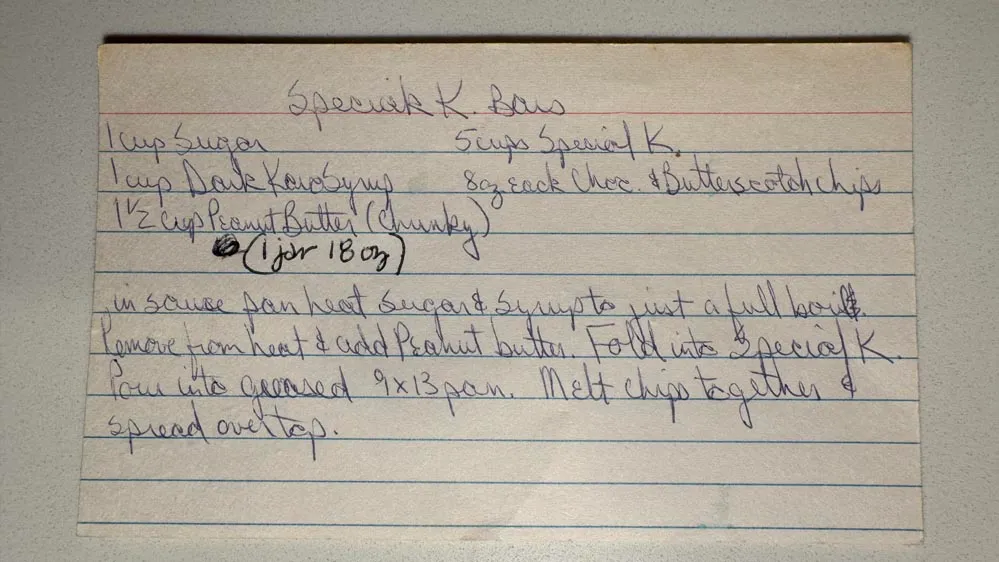 Special K. Bars
1 cup Sugar 5 cups Special K.
1 cup Dark Karo Syrup 8 oz each Choc. & Butterscotch chips
1 1/2 cup Peanut Butter (Chunky)
(1 jar 18 oz)
in sause pan heat Sugar & Syrup to just a full boil.
Remove from heat & add Peanut butter. Fold into Special K.
Pour into greased 9x13 pan. Melt chips together &
spread over top.